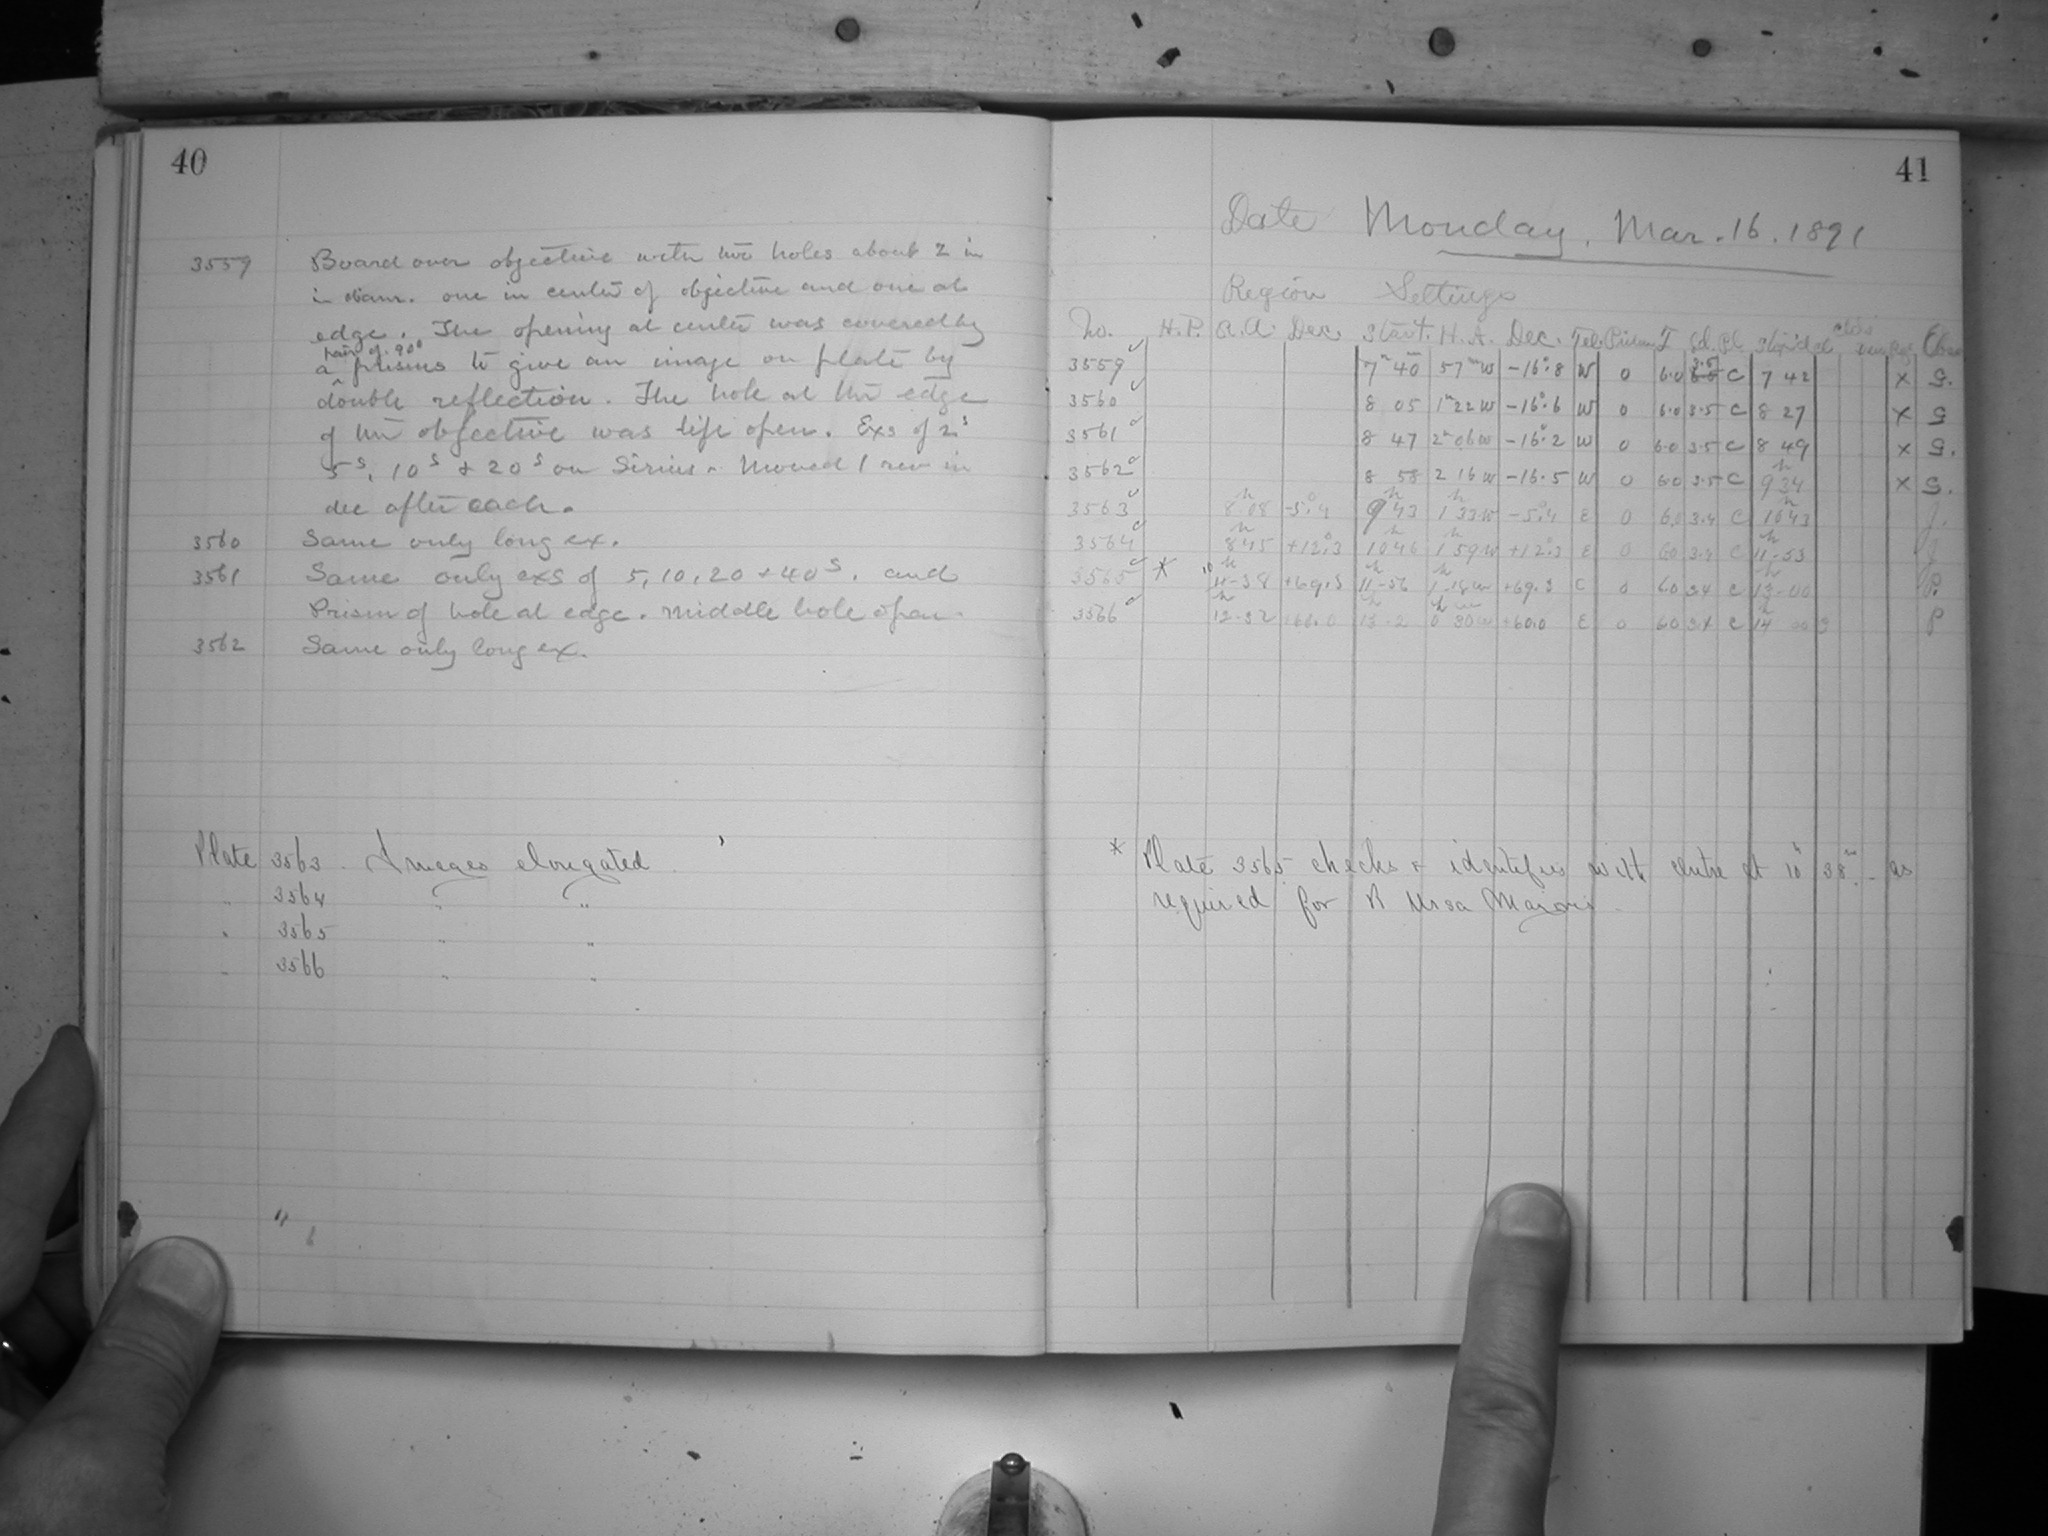 40
3559 Board over objective with two holes about 2 in
in diam. one in center of objective and one at
edge. The opening at center was covered by
pair of 90°
a prisms to give an image on plate by
double reflection. The hole at the edge
of the objective was left open. Exs of 2s
5s, 10s & 20s on Sirius. Moved 1 rev in
dec after each.
3560 Same only long ex.
3561 Same only exs of 5, 10, 20 + 40s. and
Prism of hole at edge. Middle hole open.
3562 Same only long ex.
Plate 3563. Images elongated
" 3564 " "
" 3565 " "
" 3566 " "
41
Date Monday, Mar. 16. 1891
Region Settings
No. H.P. R.A. Dec. Start. H.A. Dec. Tel. Prism T Sd. Pl. Stop'd
3559 7h 40m 57m W -16°.8 W 0 6.0 3.5 C 7 42 X G.
3560 8 05 1h22W -16°.6 W 0 6.0 3.5 C 8 27 X G
3561 8 47 2h06W -16°.2 W 0 6.0 3.5 C 8 49 X G.
3562 8 58 2 16W -16.5 W 0 6.0 3.5 C 9h34 X G.
3563 8h08 -5°.4 9h43 1h33W -5°.4 E 0 6.0 3.4 C 10h43 J.
3564 8h45 +12°.3 10h46 1h59W +12°.3 E 0 6.0 3.4 C 11h-53 J
3565 * 10 11h-38 +69.3 11h-56 1h-18W +69.3 E 0 6.0 3.4 C 13h-00 P.
3566 12h-32 +60.0 13h-2 0h30mW +60.0 E 0 6.0 3.4 C 14h 00 3 P
* Plate 3565 checks & identifies with centre at 10h 38m. - as
required for R Ursa Majoris.